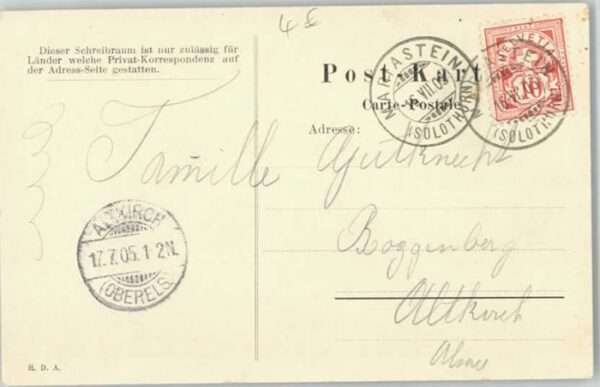 4 £
Dieser Schreibraum ist nur zulässig für
Länder welche Privat-Korrespondenz auf
der Adress-Seite gestatten.
Post Kart
Carte-Postale
Adresse:
MARIASTEIN
16.VII.05
(SOLOTHURN)
HELVETIA
10
MARIASTEIN
16.VII.05
(SOLOTHURN)
Familie Gutknecht
Roggenberg
Altkirch
Alsace
ALTKIRCH
17.7.05.1-2N.
(OBERELS.)
R. D. A.